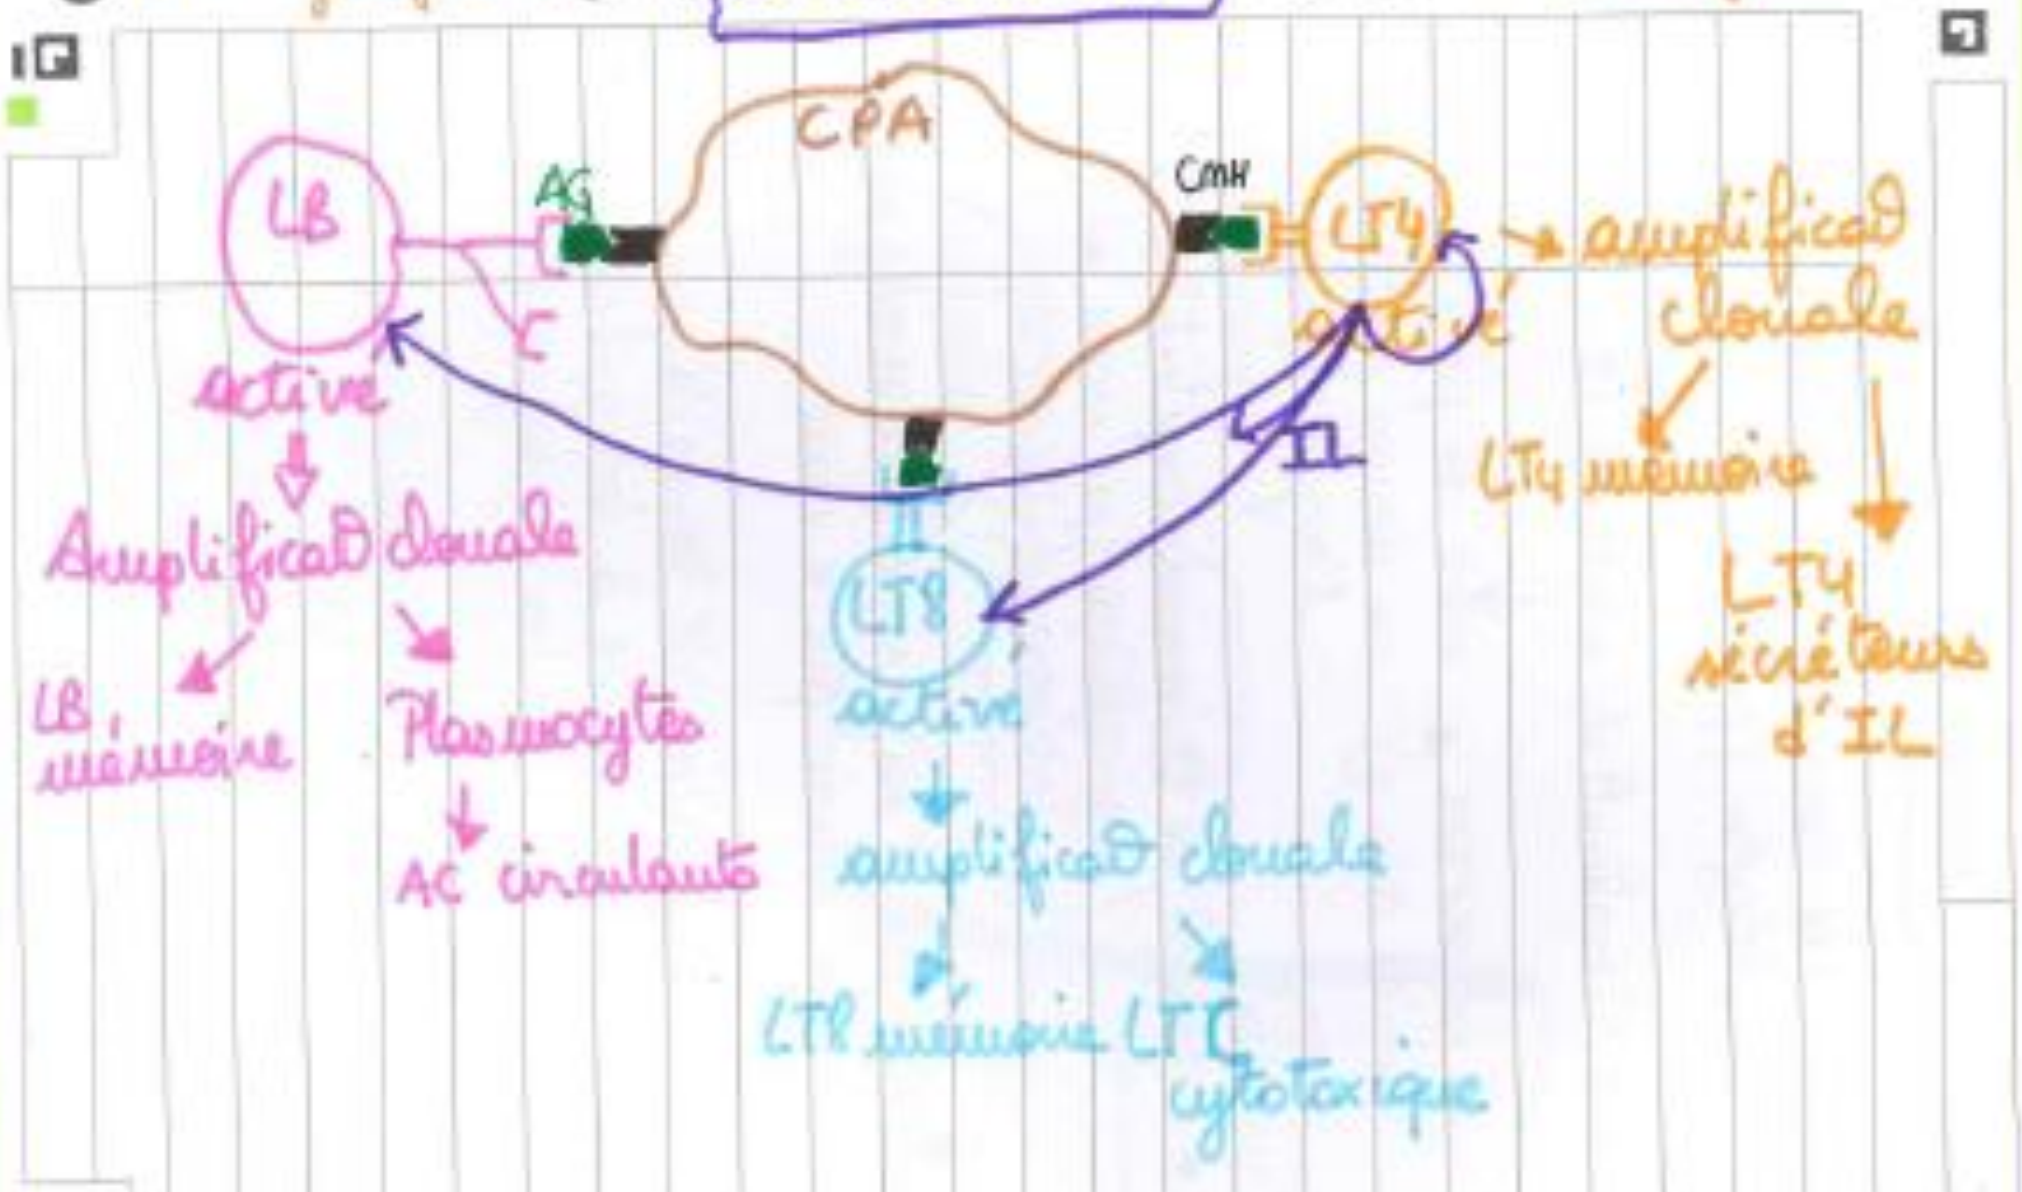 CPA
CMH
AG
LB
LT4
activé
IL
amplificat°
clonale
LT4 mémoire
LT4
sécréteurs
d'IL
activé
Amplificat° clonale
LB
mémoire
Plasmocytes
AC circulants
LT8
activé
amplificat° clonale
LT8 mémoire LTC
cytotoxique